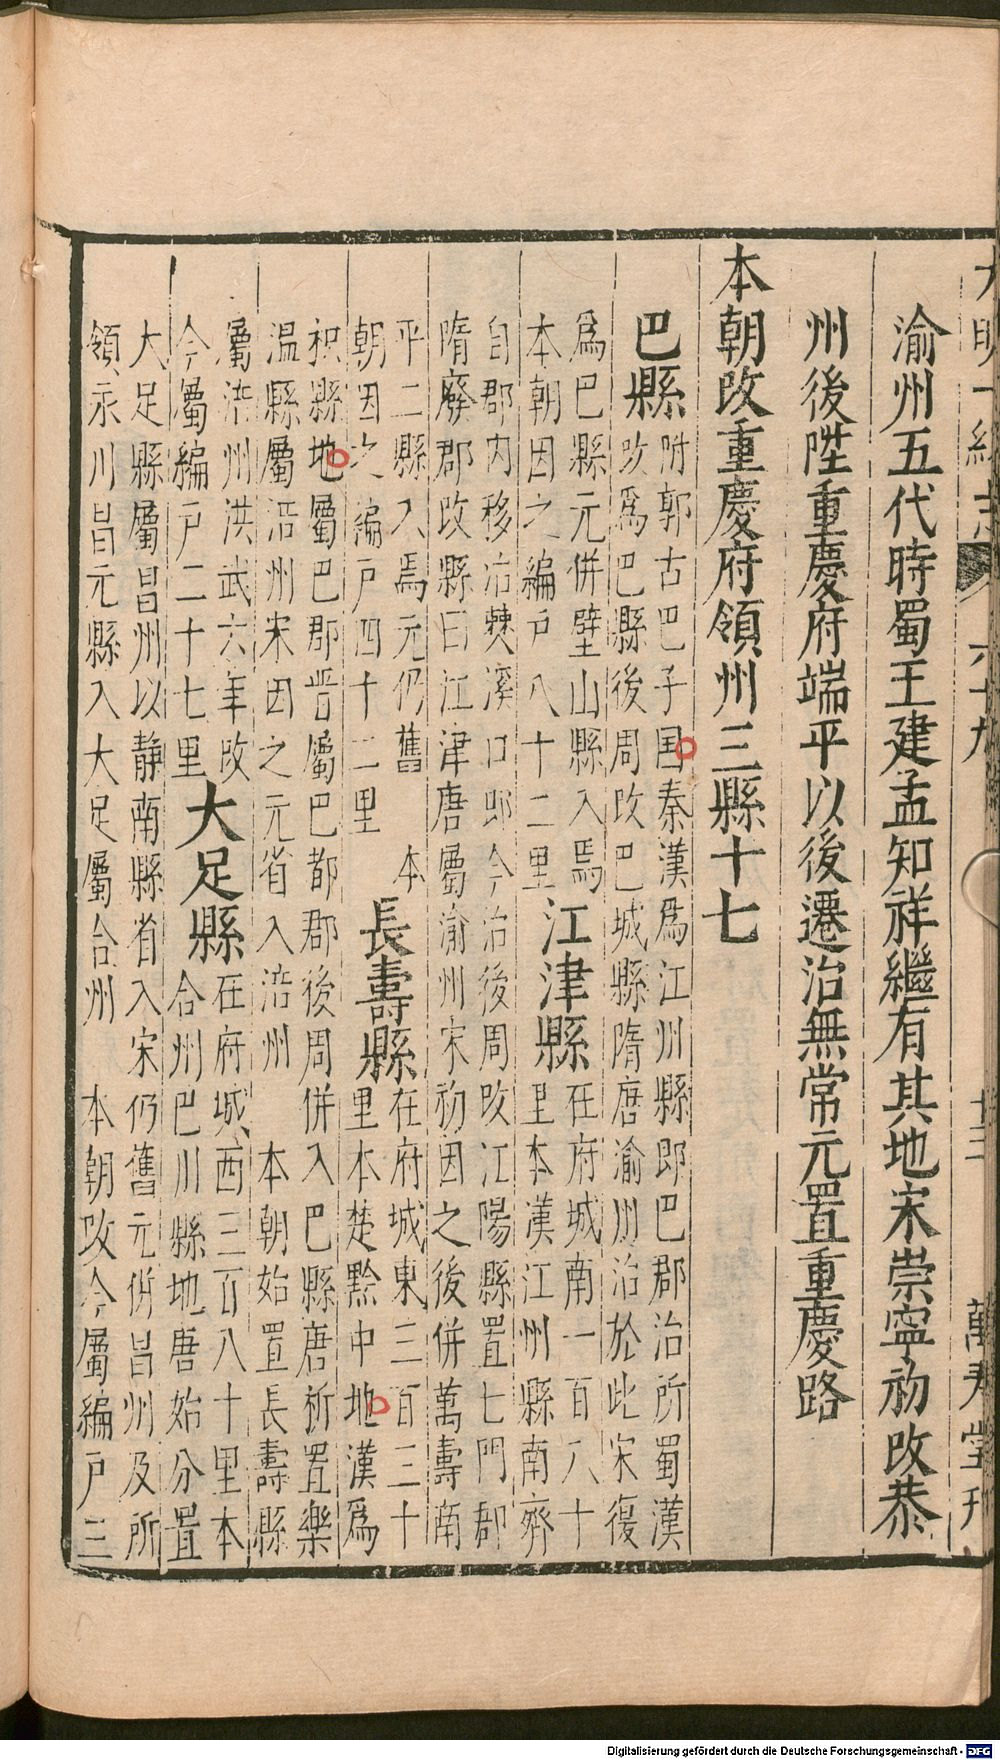 大明一統志 六十九 萬壽堂刊
渝州五代時蜀王建孟知祥繼有其地宋崇寧初改恭
州後陞重慶府端平以後遷治無常元置重慶路
本朝改重慶府領州三縣十七
巴縣
附郭古巴子国秦漢爲江州縣即巴郡治所蜀漢
改爲巴縣後周改巴城縣隋唐渝州治於此宋復
爲巴縣元併壁山縣入焉
本朝因之編戶八十二里
江津縣
在府城南一百八十
里本漢江州縣南齊
自郡内移治僰溪口即今治後周改江陽縣置七門郡
隋廢郡改縣曰江津唐屬渝州宋初因之後併萬壽南
平二縣入焉元仍舊 本
朝因之編戶四十二里
長壽縣
在府城東三百三十
里本楚黔中地漢爲
枳縣地屬巴郡晋屬巴都郡後周併入巴縣唐析置樂
温縣屬涪州宋因之元省入涪州 本朝始置長壽縣
屬涪州洪武六年改
今屬編戶二十七里
大足縣
在府城西三百八十里本
合州巴川縣地唐始分置
大足縣屬昌州以静南縣省入宋仍舊元併昌州及所
領永川昌元縣入大足屬合州 本朝改今屬編戶三
Digitalisierung gefördert durch die Deutsche Forschungsgemeinschaft - DFG